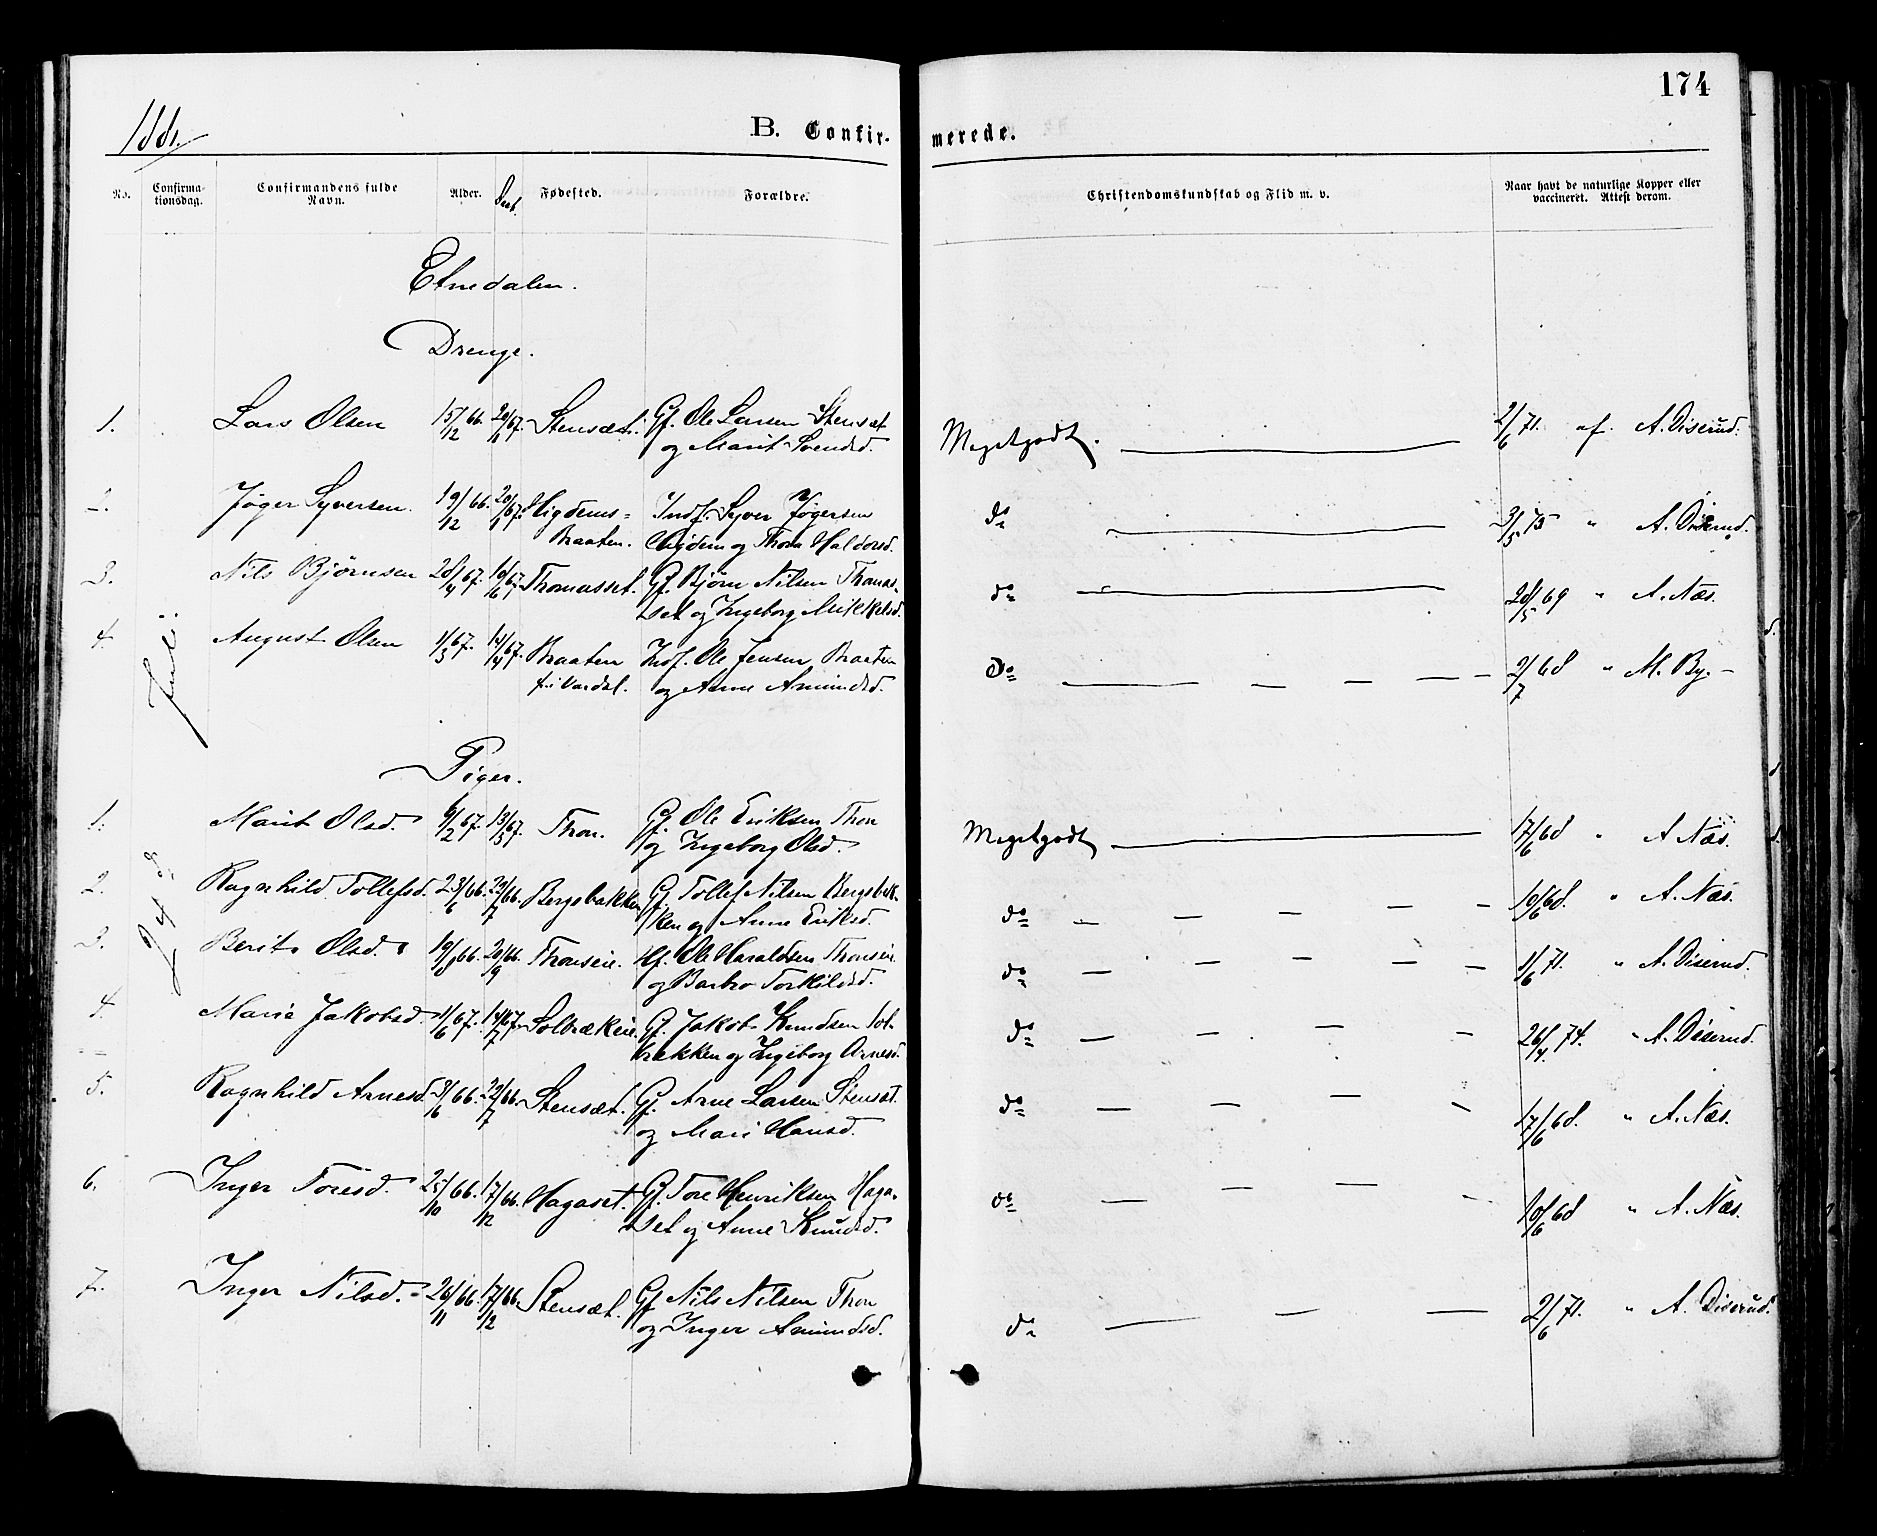 174
1881.
B. Confir-merede.
No. Confirmationsdag. Confirmandens fulde Navn. Alder. Døbt. Fødested. Forældre. Christendomskundskab og Flid m. v. Naar havt de naturlige Kopper eller vaccineret. Attest derom.
Etnedalen.
Drenge.
1. Lars Olsen 15/12 66. 20/1 67. Stensæt. Gf. Ole Larsen Stensæt Megetgodt. 2/6 71. af A. Diserud.
og Marit Svendsd.
2. Jøger Syversen. 19/12 66. 20/1 67. Higdems= Indf. Syver Jøgersen do 3/5 75 " A. Diserud.
Braaten. Higdem og Thora Haldorsd.
3. Nils Bjørnsen 28/4 67. 10/6 67. Thomasset. Gf. Bjørn Nilsen Thomas- do 28/5 69 " A. Næs.
set og Ingeborg Mikkelsd.
4. August Olsen 1/3 67. 14/4 67. Braaten Indf. Ole Jensen Braaten Do 2/7 68 " M. By.
f. i Vardal. og Anne Amundsd.
Piger.
1. Marit Olsd. 6/2 67. 13/3 67. Thon. Gf. Ole Eriksen Thon Megetgodt 17/6 68 " A. Næs.
og Ingeborg Olsd.
2. Ragnhild Tollefsd. 23/6 66. 29/7 66. Bergsbakken Gf. Tollef Nilsen Bergsbak- do 10/6 68. " A. Næs.
ken og Anne Eriksd.
3. Berit Olsd. 19/8 66. 20/9 66. Thonseie. Hf. Ole Haraldsen Thonseie do 1/6 71. " A. Diserud.
og Barbro Torkildsd.
4. Marie Jakobsd. 1/6 67. 14/7 67. Solbækeie. Gf. Jakob Knudsen Sol- do 26/4. 74. " A. Diserud.
bækken og Ingeborg Arnesd.
5. Ragnhild Arnesd. 3/6 66. 22/7 66. Stensæt. Gf. Arne Larsen Stensæt. do 17/6 68. " A. Næs.
og Mari Hansd.
6. Inger Toresd. 25/10 66. 17/12 66. Hagaset. Gf. Tore Henriksen Haga- do 10/6 68 " A. Næs.
set og Anne Knudsd.
7. Inger Nilsd. 26/11 66. 17/12 66. Stensæt. Gf. Nils Nilsen Thon do 2/6 71. " A. Diserud.
og Inger Amundsd.